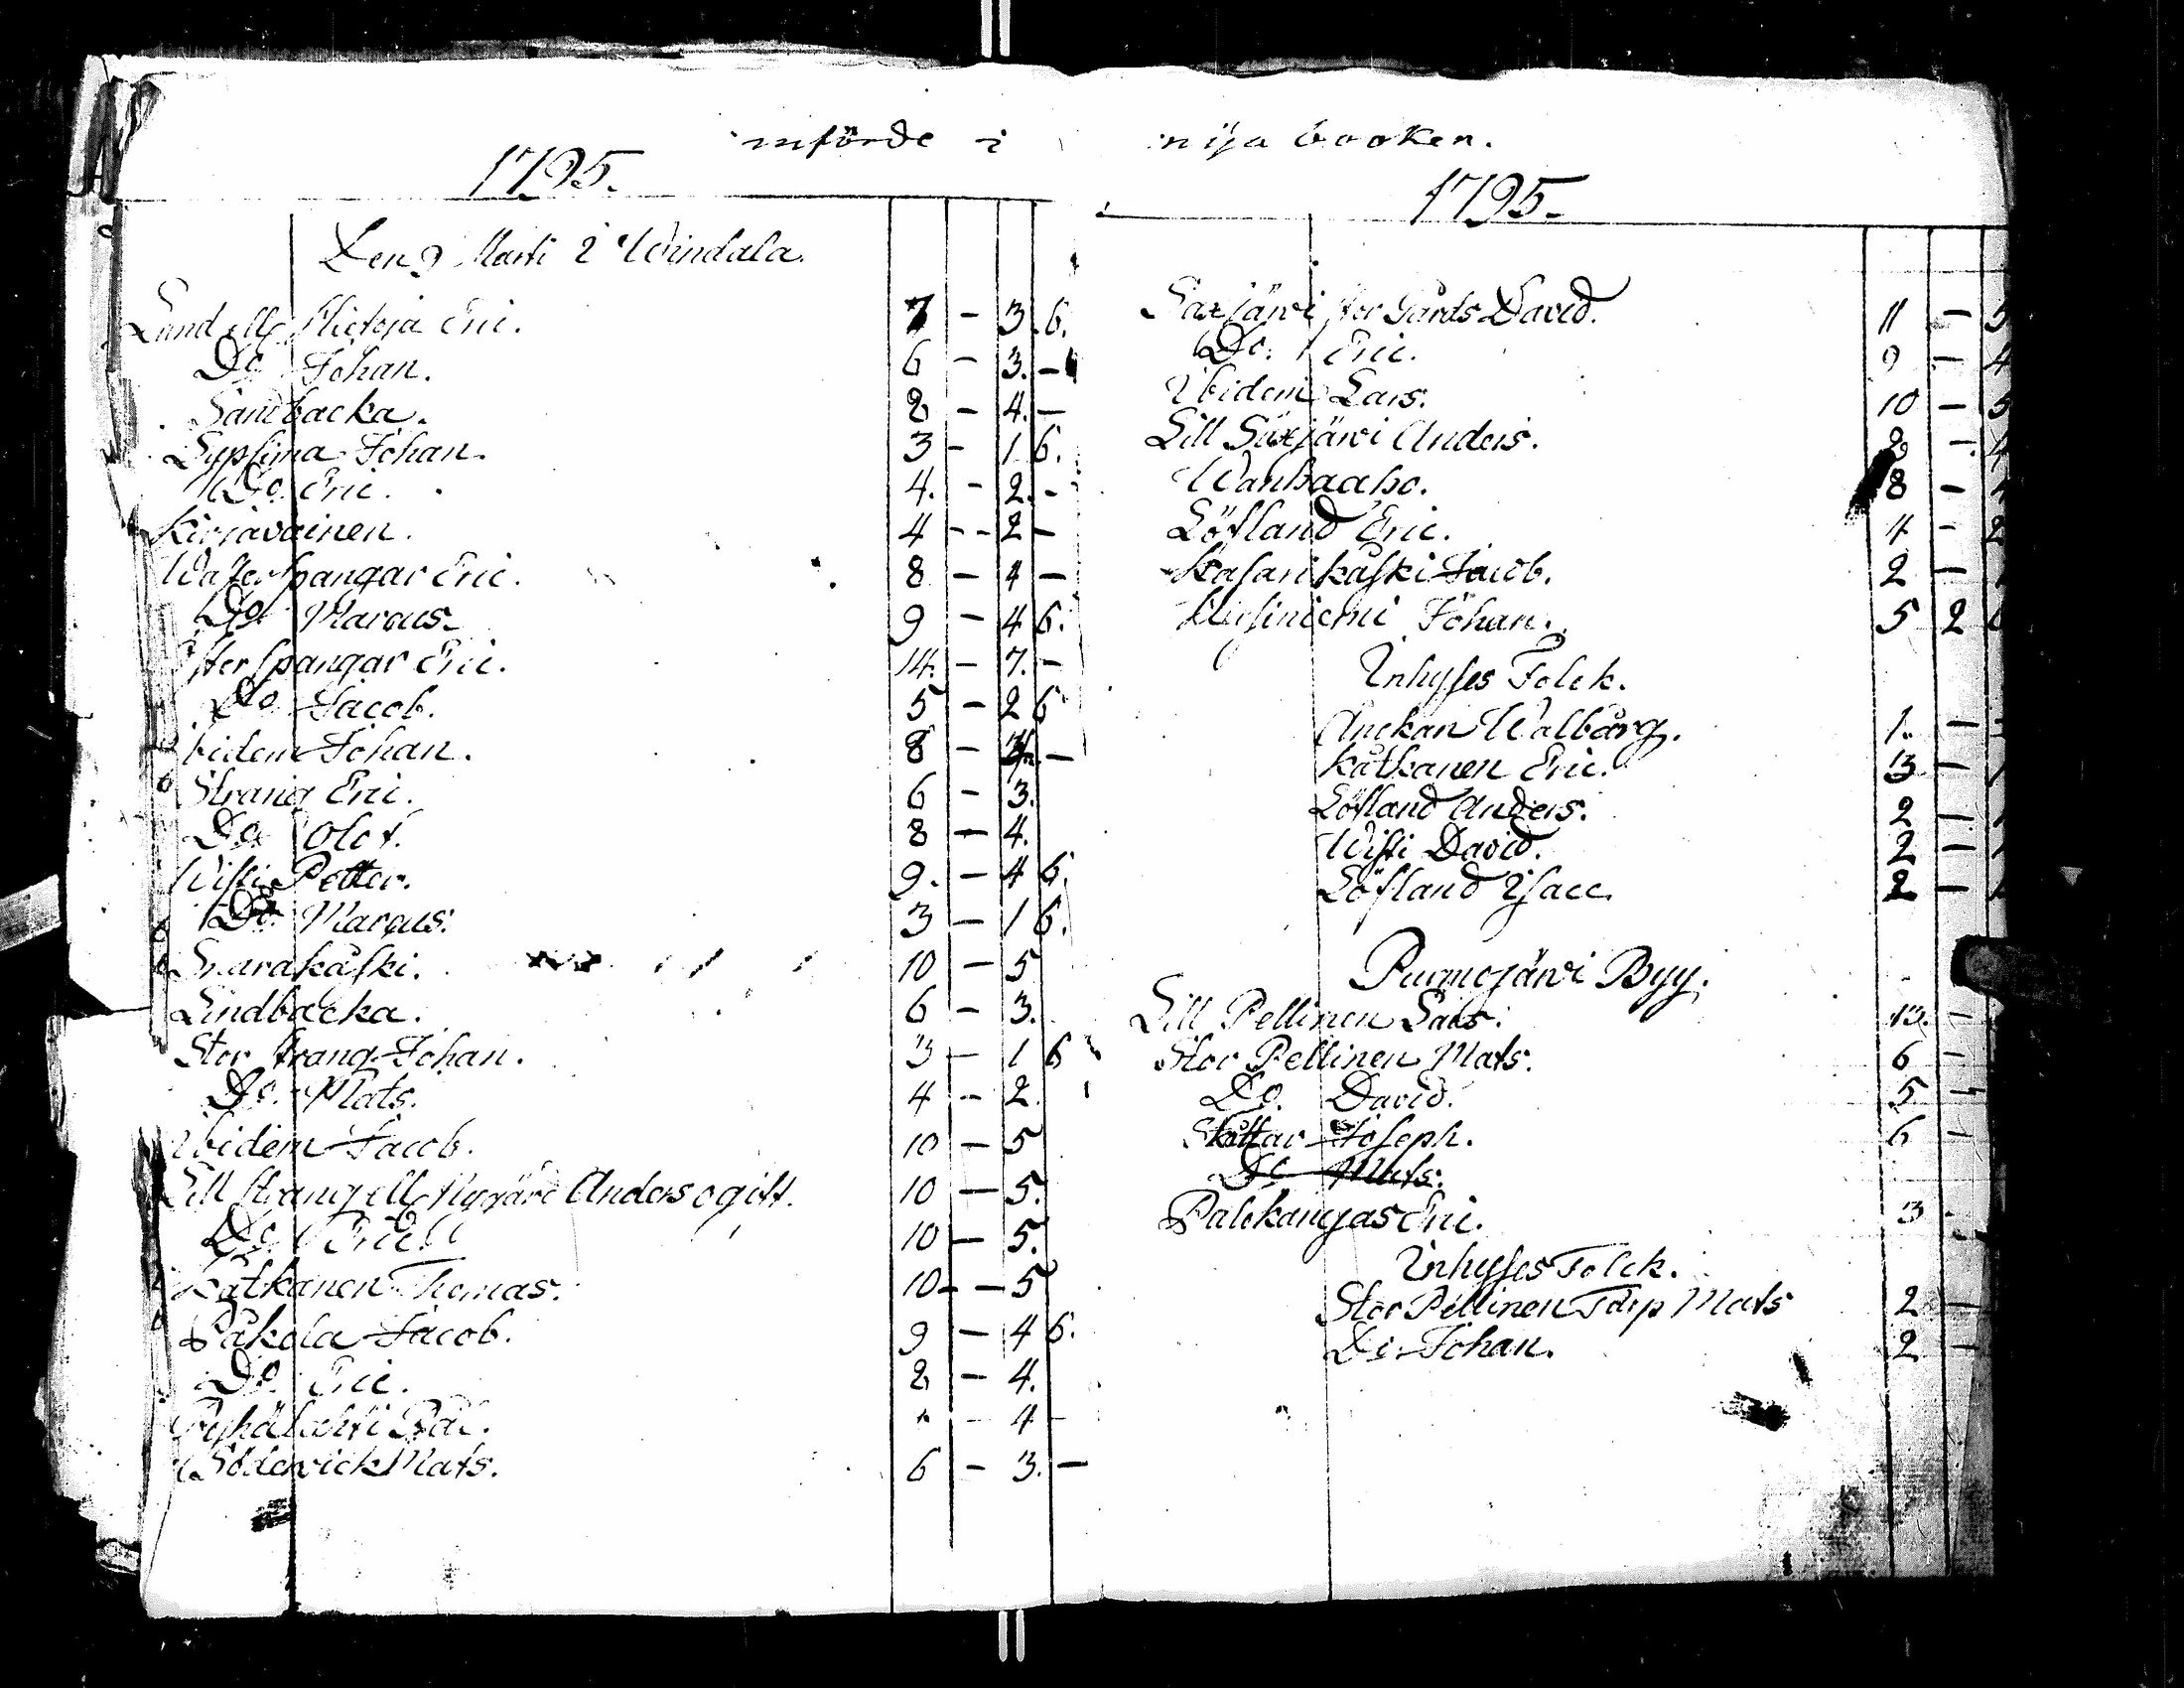 införde i nija booken.
1795.
Den 9 Marti i Windala.
Lund ell Mietoja Eric. 7 - 3. 6.
Do Johan. 6 - 3. -
Sandbacka. 8 - 4. -
Sypsima Johan. 3 - 1 6.
Do. Eric. 4. - 2. -
Kirjavainen. 4 - - 2 -
Wäster spangar Eric. 8 - 4 -
Do Marcus. 9 - 4 6.
Öster spangar Eric. 14. - 7. -
Do Jacob. 5 - 2 6
Ibidem Johan. 8 - 4. -
Strang Eric. 6 - 3.
Do Olof. 8 - 4.
Wisti Petter. 9. - 4 6.
Do. Marcus. 3 - 1 6.
Snarakåski. 10 - 5
Lindbacka. 6 - 3.
Stor strang Johan. 3 - 1 6
Do. Mats. 4 - 2.
Ibidem Jacob. 10 - 5
Lill strang ell Nygård Anders ogift. 10 - 5.
Do Eric. 10 - 5.
Katkanen Thomas. 10 - - 5
Påkola Jacob. 9 - 4 6.
Do. Eric. 8 - 4.
Pyhälahti Pål. - 4 -
Söderwick Mats. 6 - 3. -
1795.
Saxjärwi stor Gårds David. 11 - 5
Do. Eric. 9 - 4
Ibidem Lars. 10 - 5
Lill Saxjärwi Anders. 8 - 4
Wanhaaho. 8 -
Löfland Eric. 4 - 2
Kasarikåski Jacob. 2 -
Mysiniemi Johan. 5 2
Inhyses Folck.
Anckan Walbårg. 1. -
Katkanen Eric. 3 -
Löfland Anders. 2 -
Wisti David. 2 -
Löfland Isacc. 2 -
Purmojärwi Byy.
Lill Pellinen Lars. 13. -
Stor Pellinen Mats. 6 -
Do. David. 5 -
Skuttar Joseph. 6 -
Do Mats.
Palokangas Eric. 3 -
Inhyses Folck.
Stor Pellinen Torp Mats 2 -
Do Johan. 2 -